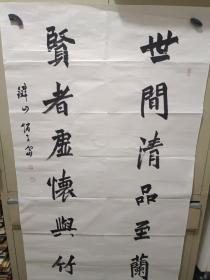 世間清品至蘭
賢者虛懷與竹